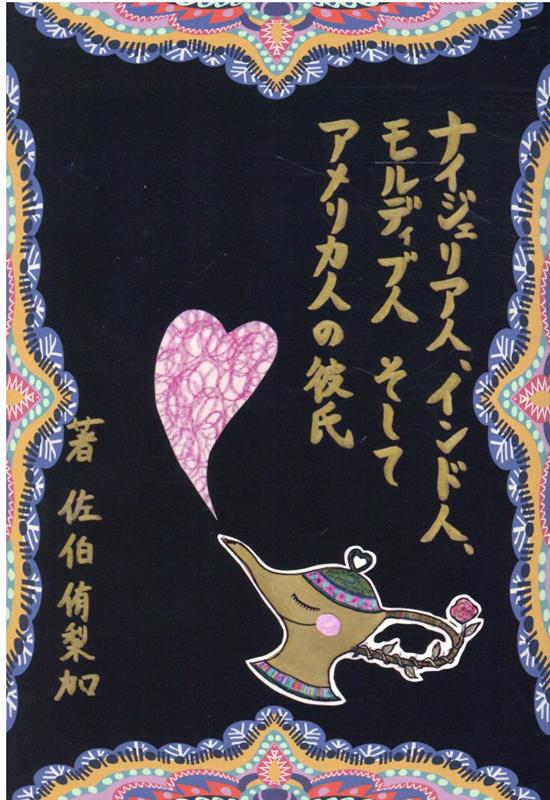 ナイジェリア人、インド人、
モルディブ人 そして
アメリカ人の彼氏
著 佐伯侑梨加